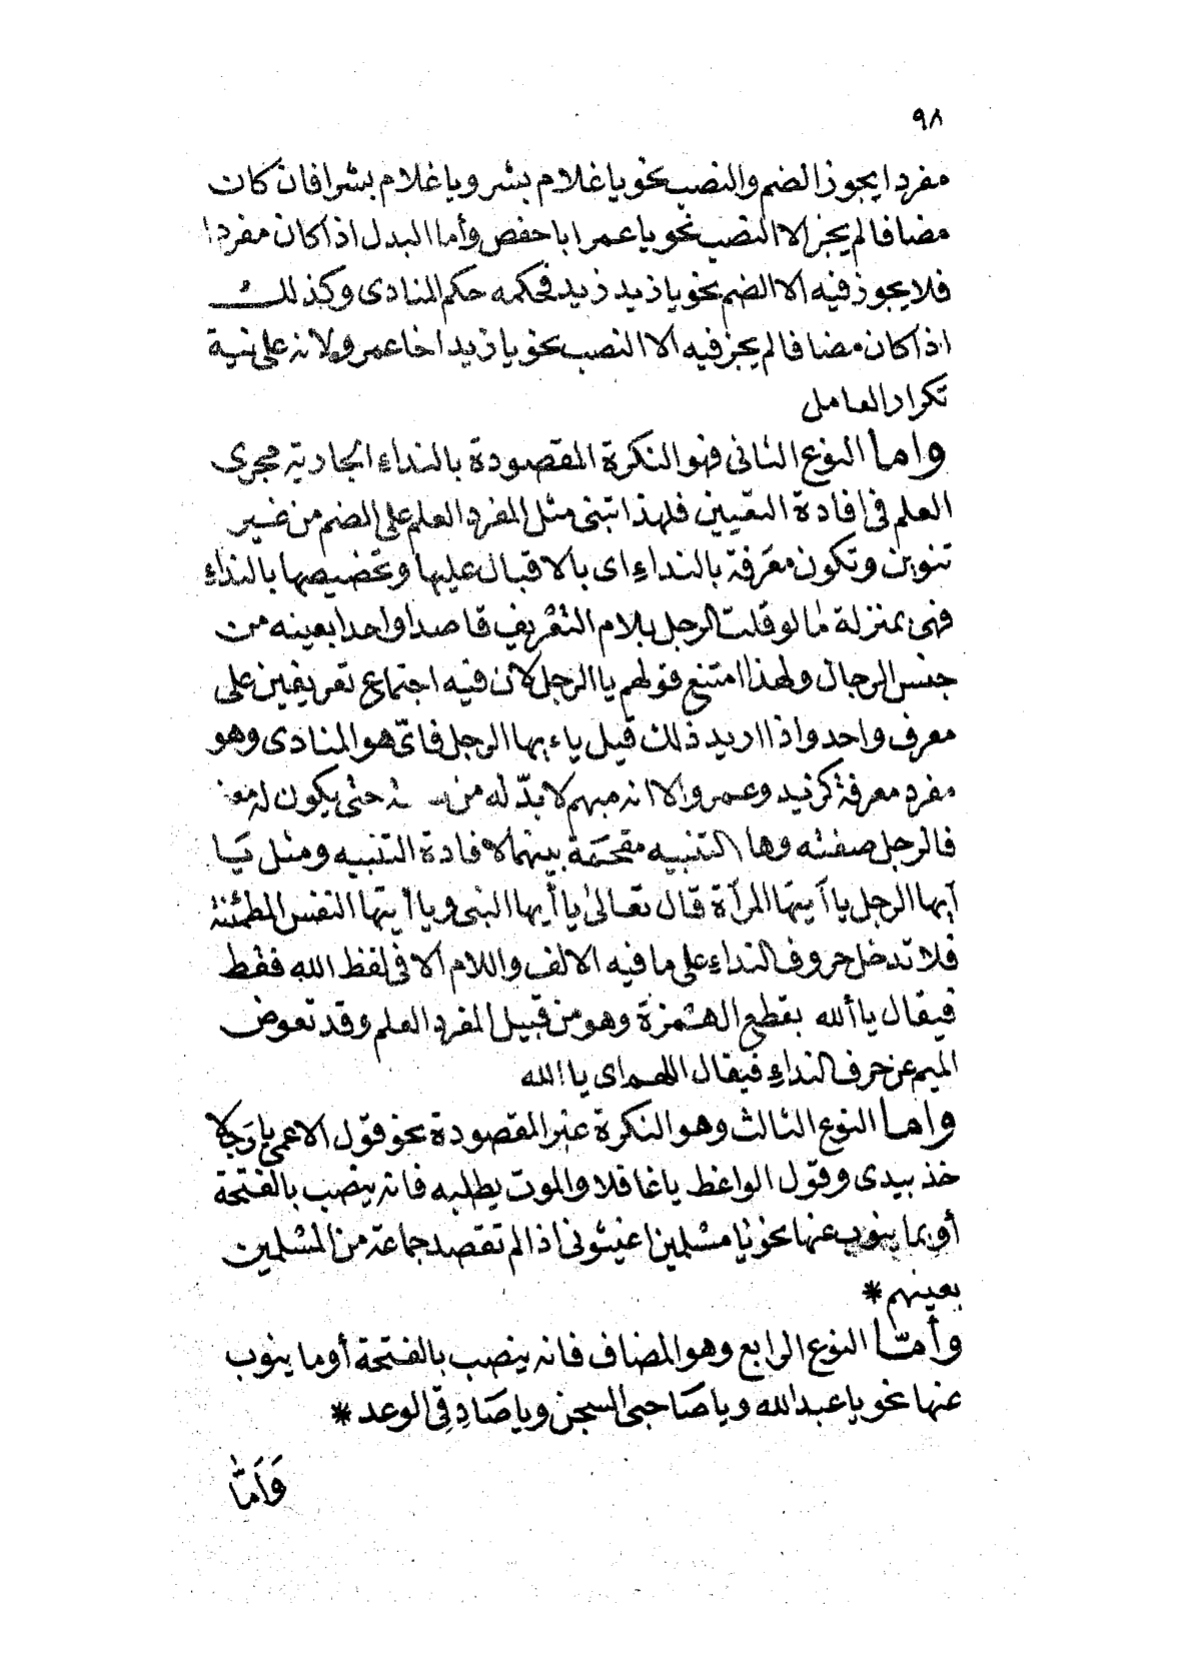 ٩٨
مفردا يجوز الضم والنصب نحو يا غلام بشر ويا غلام بشرا فان كان
مضافا لم يجز الا النصب نحو يا عمر ابا حفص وأما البدل اذا كان مفردا
فلا يجوز فيه الا الضم نحو يا زيد زيد فحكمه حكم المنادى وكذلك
اذا كان مضافا لم يجز فيه الا النصب نحو يا زيد اخا عمرو لانه على نية
تكرار العامل
واما النوع الثانى فهو النكرة المقصودة بالنداء الجارية مجرى
العلم فى إفادة التعيين فلهذا تبنى مثل المفرد العلم على الضم من غير
تنوين وتكون معرفة بالنداء اى بالاقبال عليها وتخصيصها بالنداء
فهى بمنزلة ما لو قلت الرجل بلام التعريف قاصدا واحدا بعينه من
جنس الرجال ولهذا امتنع قولهم يا الرجل لان فيه اجتماع تعريفين على
معرف واحد واذا اريد ذلك قيل ياءيها الرجل فاىّ هو المنادى وهو
مفرد معرفة كزيد وعمرو الا انه مبهم لا بدّ له من حتى يكون له
فالرجل صفته وها التنبيه مقحمة بينهما لافادة التنبيه ومثل يا
آيها الرجل يا آيتها المرآة قال تعالى يا أيها النبى ويا أيتها النفس المطمئنة
فلا تدخل حروف النداء على ما فيه الالف واللام الا فى لفظ الله فقط
فيقال يا ألله بقطع الهمزة وهو من قبيل المفرد العلم وقد تعوض
الميم عن حرف النداء فيقال اللهم اى يا الله
واما النوع الثالث وهو النكرة غير المقصودة نحو قول الاعمى يا رجلا
خذ بيدى وقول الواعظ يا غافلا والموت يطلبه فانه ينصب بالفتحة
أو بما ينوب عنها نحو يا مسلمين اغيثونى اذا لم تقصد جماعة من المسلمين
بعينهم *
وأمّا النوع الرابع وهو المضاف فانه ينصب بالفتحة أو ما ينوب
عنها نحو يا عبد الله ويا صَاحبى السجن ويا صَادِقى الوعد *
وَأَمَّا